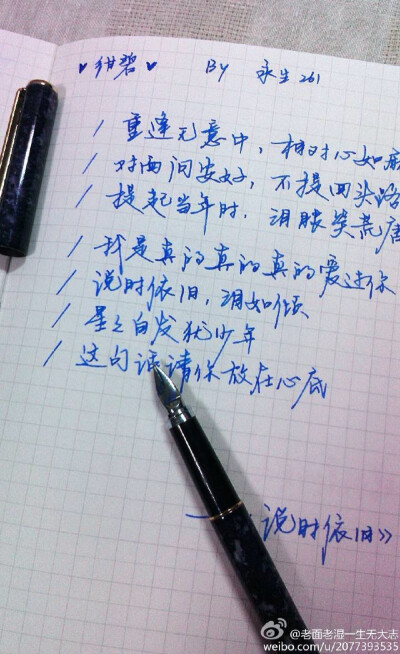 ♥绀碧♥ By 永生261
/ 重逢无意中，相对心如麻
/ 对面问安好，不提回头路
/ 提起当年时，泪眼笑荒唐
/ 我是真的真的真的爱过你
/ 说时依旧，泪如倾
/ 星星白发犹少年
/ 这句话请你放在心底
——说时依旧》
@老面老湿一生无大志
weibo.com/u/2077393535